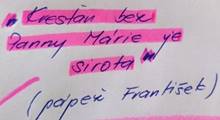 "Krestăn bex
Panny Márie ye
sirota"
(pápež František)